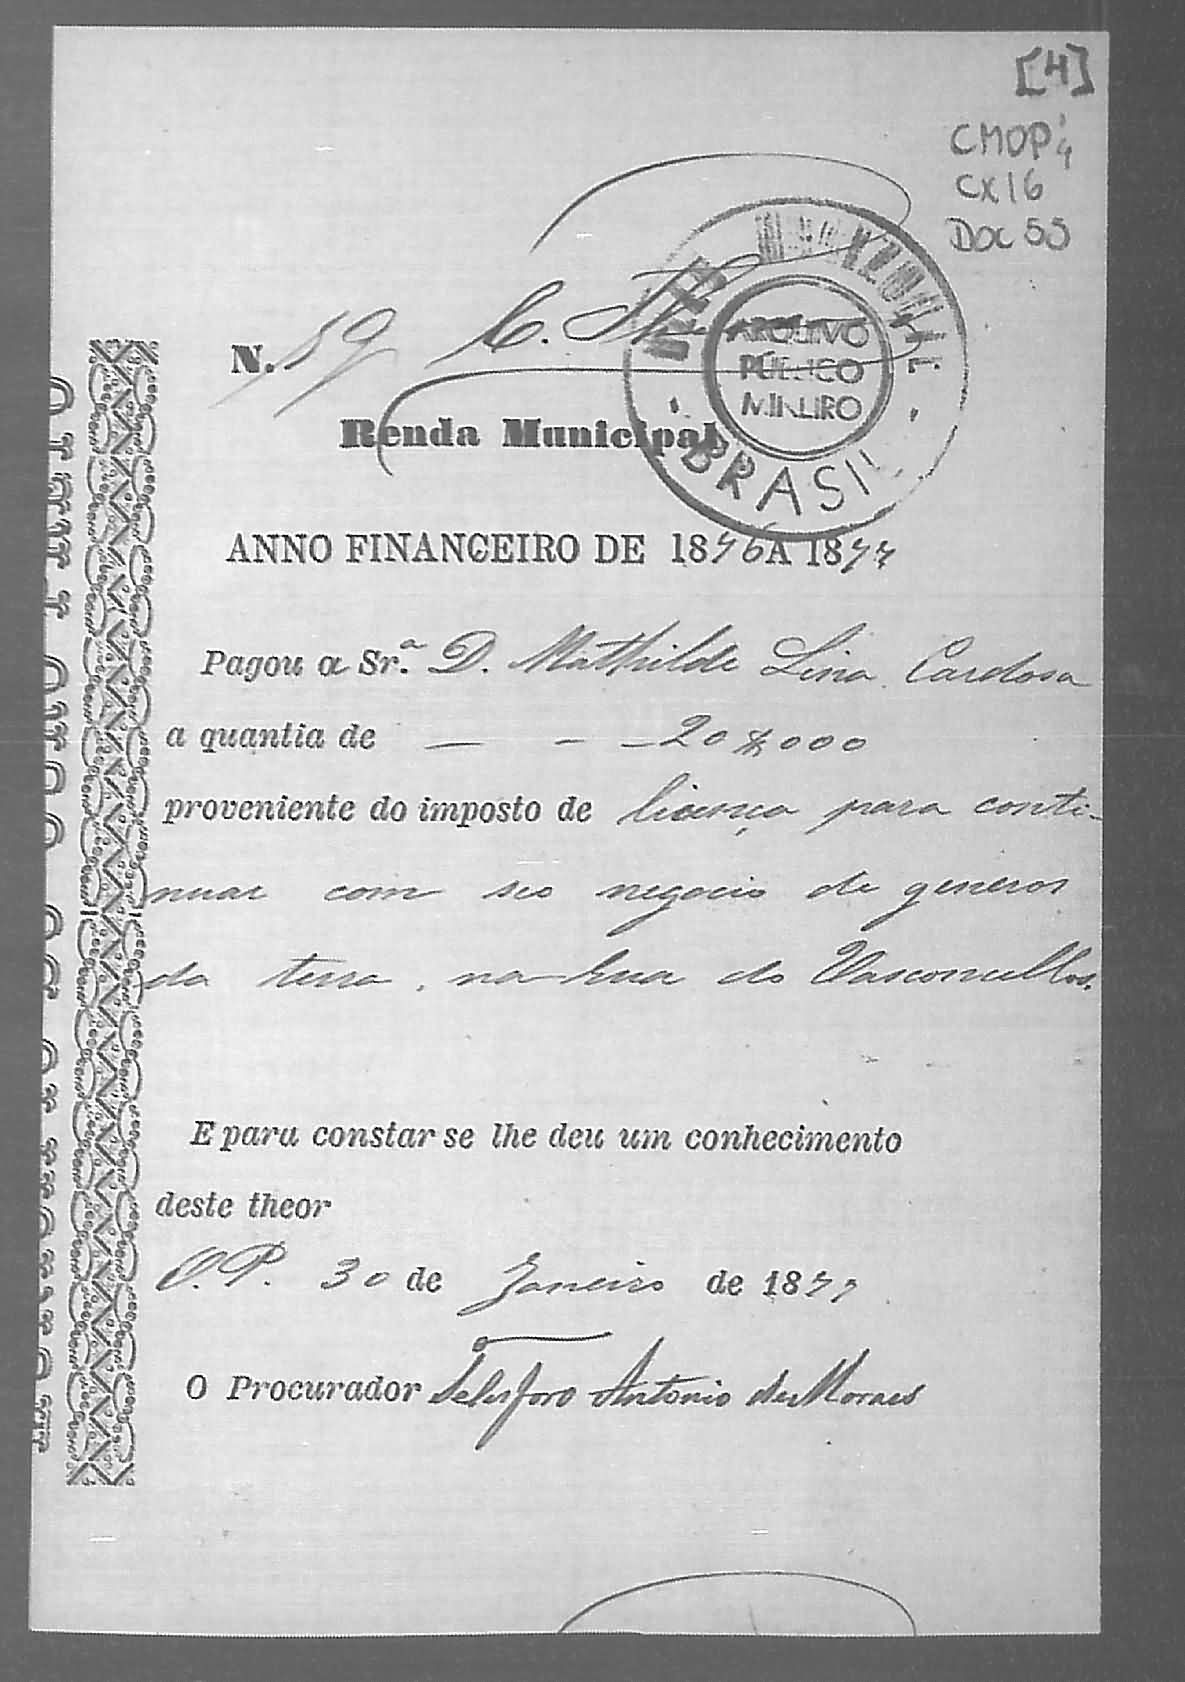 [4]
CMOP
CX16
DOC 55
N. 59
ARQUIVO
PÚBLICO
MINEIRO
BRASIL
Renda Municipal
ANNO FINANCEIRO DE 1876 A 1877
Pagou a Sr.ª D. Mathilde Lina Cardosa
a quantia de — — — 20$000
proveniente do imposto de licença para conti-
nuar com seo negocio de generos
da terra, na Rua do Vasconcellos.
E para constar se lhe deu um conhecimento
deste theor
O.P. 30 de Janeiro de 1877
O Procurador Telesforo Antonio de Moraes